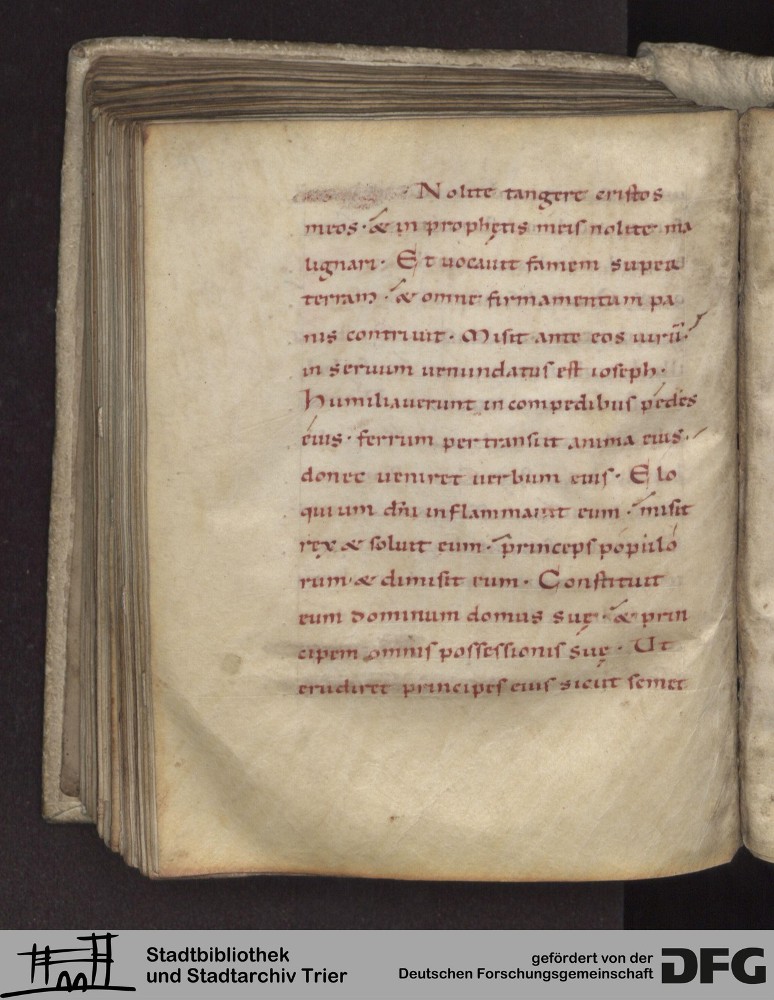 Nolite tangere cristos
meos · & in prophetis meis nolite ma
lignari · Et uocauit famem super
terram · & omne firmamentum pa
nis contriuit · Misit ante eos uirū ·
in seruum uenundatus est ioseph ·
humiliauerunt in compedibus pedes
eius · ferrum pertransiit anima eius ·
donec ueniret uerbum eius · Elo
quium dn̄i inflammauit eum · misit
rex & soluit eum · princeps populo
rum · & dimisit eum · Constituit
eum dominum domus suę · & prin
cipem omnis possessionis suę · Ut
erudiret principes eius sicut semet
Stadtbibliothek
und Stadtarchiv Trier
gefördert von der
Deutschen Forschungsgemeinschaft
DFG